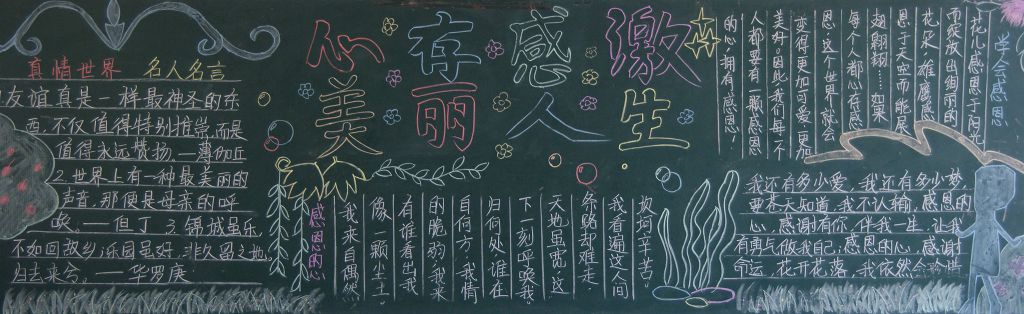 心存感激
美丽人生
真情世界 名人名言
1.友谊真是一样最神圣的东
西,不仅值得特别推崇,而是
值得永远赞扬。——薄伽丘
2.世界上有一种最美丽的
声音,那便是母亲的呼
唤。——但丁 3.锦城虽乐,
不如回故乡;乐园虽好,非久留之地。
归去来兮。——华罗庚
感恩的心
我来自偶然
像一颗尘土
有谁看出我
的脆弱 我来
自何方,我情
归何处 谁在
下一刻呼唤我。
天地虽宽,这
条路却难走
我看遍这人间
坎坷辛苦。
学会感恩
花儿感恩于阳光
而绽放出绚丽的
花朵,雄鹰感
恩于天空而能展
翅翱翔……如果
每个人都心存感
恩,这个世界就会
变得更加可爱,更加
美好。因此,我们每一个
人都要有一颗感恩
的心,拥有感恩
我还有多少爱,我还有多少梦,
要苍天知道,我不认输,感恩的
心,感谢有你,伴我一生,让我
有勇气做我自己,感恩的心,感谢
命运,花开花落,我依然会珍惜